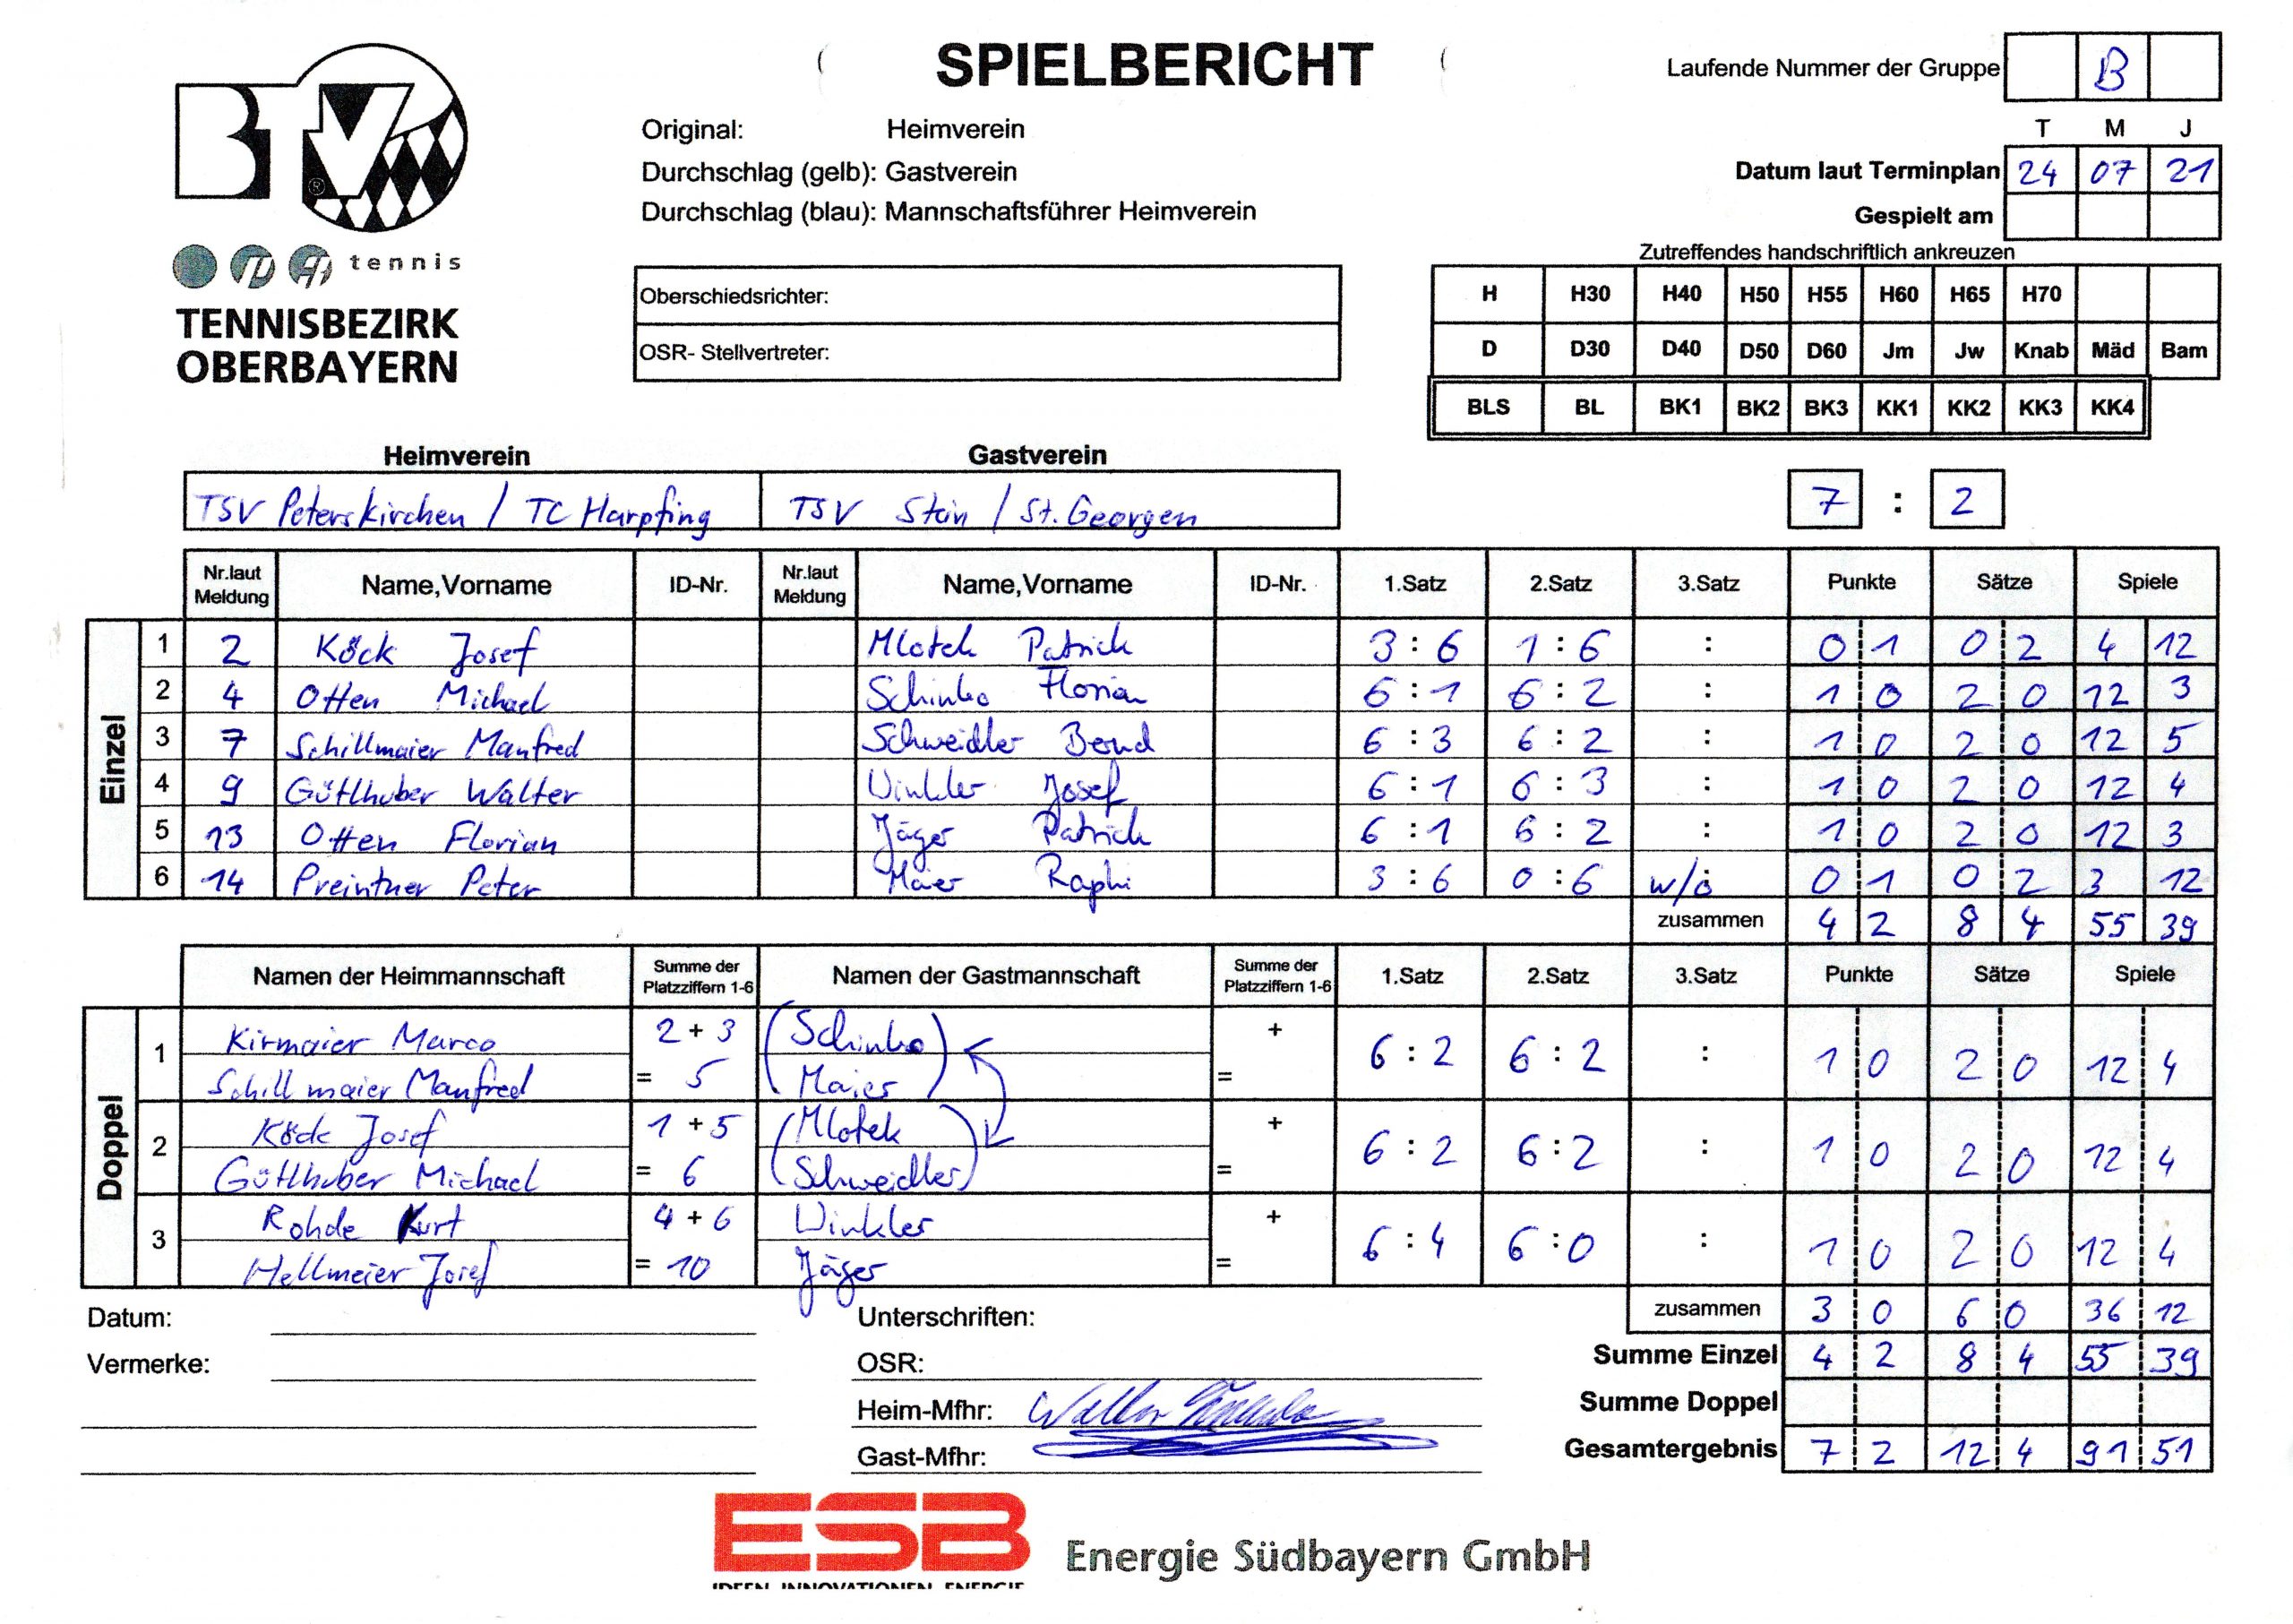 SPIELBERICHT
Laufende Nummer der Gruppe B
Original: Heimverein
T M J
Durchschlag (gelb): Gastverein
Datum laut Terminplan 24 07 21
Durchschlag (blau): Mannschaftsführer Heimverein
Gespielt am
BTV ®
tennis
TENNISBEZIRK
OBERBAYERN
Zutreffendes handschriftlich ankreuzen
Oberschiedsrichter:
OSR- Stellvertreter:
H H30 H40 H50 H55 H60 H65 H70
D D30 D40 D50 D60 Jm Jw Knab Mäd Bam
BLS BL BK1 BK2 BK3 KK1 KK2 KK3 KK4
Heimverein Gastverein
TSV Peterskirchen / TC Harpfing TSV Stein / St. Georgen 7 : 2
Nr.laut Meldung Name,Vorname ID-Nr. Nr.laut Meldung Name,Vorname ID-Nr. 1.Satz 2.Satz 3.Satz Punkte Sätze Spiele
Einzel
1 2 Köck Josef Mlotek Patrick 3 : 6 1 : 6 : 0 1 0 2 4 12
2 4 Otten Michael Schinko Florian 6 : 1 6 : 2 : 1 0 2 0 12 3
3 7 Schillmaier Manfred Schweidler Bernd 6 : 3 6 : 2 : 1 0 2 0 12 5
4 9 Gütlhuber Walter Winkler Josef 6 : 1 6 : 3 : 1 0 2 0 12 4
5 13 Otten Florian Jäger Patrick 6 : 1 6 : 2 : 1 0 2 0 12 3
6 14 Preintner Peter Maier Raphi 3 : 6 0 : 6 w/o 0 1 0 2 3 12
zusammen 4 2 8 4 55 39
Namen der Heimmannschaft Summe der Platzziffern 1-6 Namen der Gastmannschaft Summe der Platzziffern 1-6 1.Satz 2.Satz 3.Satz Punkte Sätze Spiele
Doppel
1 Kirmaier Marco 2 + 3 (Schinko) + 6 : 2 6 : 2 : 1 0 2 0 12 4
Schillmaier Manfred = 5 Maier =
2 Köck Josef 1 + 5 (Mlotek + 6 : 2 6 : 2 : 1 0 2 0 12 4
Gütlhuber Michael = 6 Schweidler) =
3 Rohde Kurt 4 + 6 Winkler + 6 : 4 6 : 0 : 1 0 2 0 12 4
Hellmeier Josef = 10 Jäger =
Datum: Unterschriften: zusammen 3 0 6 0 36 12
Vermerke: OSR: Summe Einzel 4 2 8 4 55 39
Heim-Mfhr: Summe Doppel
Gast-Mfhr: Gesamtergebnis 7 2 12 4 91 51
ESB
IDEEN INNOVATIONEN ENERGIE
Energie Südbayern GmbH